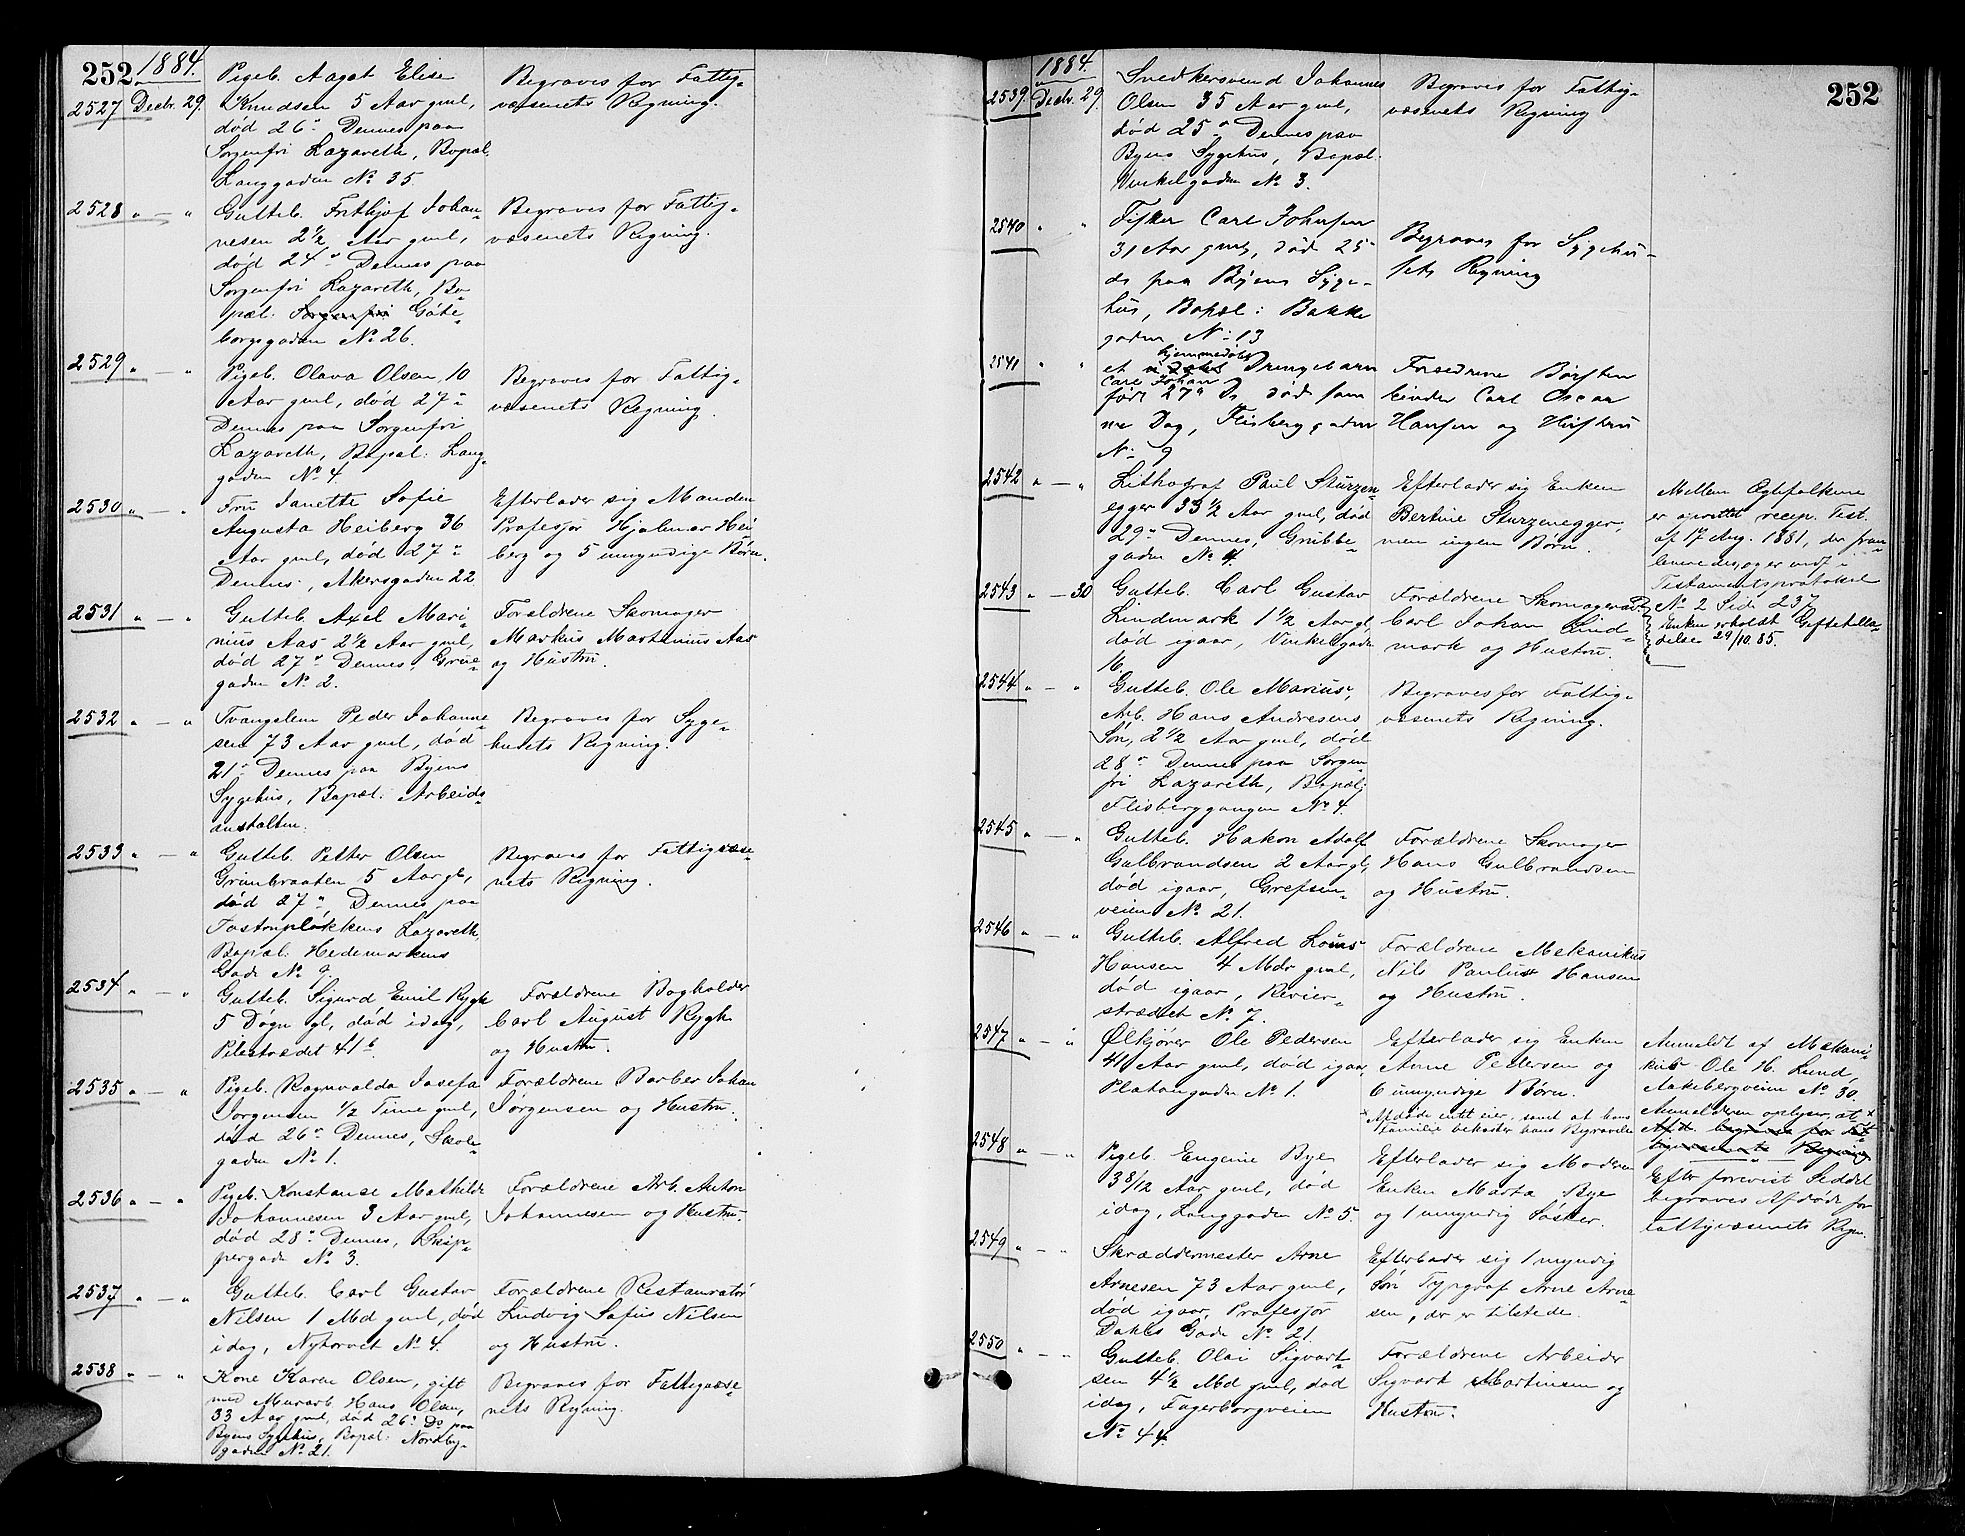 252
1884.
2527 Decbr. 29.
Pigeb. Aagot Elise
Knudsen 5 Aar gml,
død 26de Dennes paa
Sorgenfri Lazareth, Bopæl.
Langgaden No 35.
Begraves for Fattig-
væsenets Regning.
2528 " — "
Gutteb. Frithjof Johan-
nesen 2½ Aar gml,
død 24de Dennes paa
Sorgenfri Lazareth, Bo-
pæl: Sorgenfri Göte-
borggaden No 26.
Begraves for Fattig-
væsenets Regning.
2529 " — "
Pigeb. Olava Olsen, 10
Aar gml, død 27de
Dennes paa Sorgenfri
Lazareth, Bopæl: Lang-
gaden No 4.
Begraves for Fattig-
væsenets Regning.
2530 " — "
Fru Janette Sofie
Augusta Heiberg 36
Aar gml, død 27de
Dennes, Akersgaden 22
Efterlader sig Manden
Professor Hjalmar Hei-
berg og 5 umyndige Børn.
2531 " — "
Gutteb. Axel Mari-
nius Aas 2½ Aar gml,
død 27de Dennes, Grüe-
gaden No 2.
Forældrene Skomager
Markus Martinius Aas
og Hustru.
2532 " — "
Tvangslem Peder Johanne-
sen 73 Aar gml, død
21de Dennes paa Byens
Sygehus, Bopæl: Arbeids-
anstalten.
Begraves for Syge-
husets Regning.
2533 " — "
Gutteb. Petter Olsen
Grinbraaten 5 Aar gl,
død 27de Dennes paa
Lazareth,
Bopæl: Hedemarkens
Gade No 9.
Begraves for Fattigvæse-
nets Regning.
2534 " — "
Gutteb. Sigurd Emil Rygh
5 Døgn gl, død idag,
Pilestrædet 41b
Forældrene Bogholder
Carl August Rygh
og Hustru.
2535 " — "
Pigeb. Ragnvalda Josefa
Jørgensen ½ Time gml,
død 26de Dennes, Skole-
gaden No 1.
Forældrene Barber Johan
Jørgensen og Hustru.
2536 " — "
Pigeb. Konstanse Mathilde
Johannesen 3 Aar gml,
død 28de Dennes, Skip-
pergade No 3.
Forældrene Arb. Anton
Johannesen og Hustru.
2537 " — "
Gutteb. Carl Gustav
Nilsen 1 Md gml, død
idag, Nytorvet No 4.
Forældrene Restauratør
Ludvig Sofus Nilsen
og Hustru.
2538 " — "
Kone Karen Olsen, gift
med Murarb. Hans Olsen,
33 Aar gml, død 26de Ds paa
Byens Sygehus, Bopæl: Nordby-
gaden No 21.
Begraves for Fattigvæse-
nets Regning.
252
1884.
2539. Decbr. 29.
Snedkersvend Johannes
Olsen 35 Aar gml,
død 25de Dennes paa
Byens Sygehus, Bopæl.
Vinkelgaden No 3.
Begraves for Fattig-
væsenets Regning
2540 " "
Fisker Carl Johnsen
31 Aar gml, død 25-
ds paa Byens Syge-
hus, Bopæl: Bakke
gaden No 13
Begraves for Sygehu-
sets Regning
2541 " "
hjemmedøbt
et Drengebarn
Carl Johan
født 27de Ds død sam
me Dag, Flisberggaden
No 9
Forældrene Børsten
binder Carl Oscar
Hansen og Hustru
2542 " — "
Lithograf Paul Sturzen-
egger 33½ Aar gml, død
29de Dennes, Grubbe-
gaden No 4.
Efterlader sig Enken
Bertine Sturzenegger,
men ingen Børn.
Mellem Ægtefolkene
er oprettet recip. Test.
af 17 Aug. 1881, der frem-
leveredes, og er indf. i
Testamentsprotokol
No 2 Side 237
Enken erholdt Giftetilla-
delse 29/10. 85.
2543 " — 30
Gutteb. Carl Gustav
Lindmark 1½ Aar gl,
død igaar, Vinkelgaden
16.
Forældrene
Carl Johan Lind-
mark og Hustru.
2544 " — "
Gutteb. Ole Marius,
Arb. Hans Andresens
Søn, 2½ Aar gml, død
28de Dennes paa Sorgen-
fri Lazareth, Bopæl:
Flisberggangen No 4.
Begraves for Fattig-
væsenets Regning.
2545 " — "
Gutteb. Hakon Adolf
Gulbrandsen 2 Aar gl,
død igaar, Grefsen-
veien No 21.
Forældrene Skomager
Hans Gulbrandsen
og Hustru.
2546 " — "
Gutteb. Alfred Louis
Hansen 4 Mdr gml,
død igaar, Revier-
strædet No 7.
Forældrene Mekanikus
Nils Paulus Hansen
og Hustru.
2547 " — "
Ølkjører Ole Pedersen
41 Aar gml, død igaar,
Platougaden No 1.
Efterlader sig Enken
Anne Pedersen og
6 umyndige Børn.
x Afdøde intet eier, samt at hans
Familie bekoster hans Begravelse
Anmeldt af Mekani-
kus Ole H. Lund,
Aakebergveien No 30.
Anmelderen oplyser, at x
Afd. begraves for Fat-
tigvæsenets Regning
Efter forevist Seddel
begraves Afdøde for
Fattigvæsenets Regn.
2548 " — "
Pigeb. Eugenie Bye
3 8/12 Aar gml, død
idag, Langgaden No 5.
Efterlader sig Moderen
Enken Marta Bye
og 1 umyndig Søster.
2549 " — "
Skræddermester Arne
Arnesen 73 Aar gml,
død igaar, Professor
Dahls Gade No 21.
Efterlader sig 1 myndig
Søn Typograf Arne Arne-
sen, der er tilstede.
2550 " — "
Gutteb. Olai Sigvart-
sen 4½ Md gml, død
idag, Fagerborgveien
No 44.
Forældrene Arbeider
Sigvart Martinsen og
Hustru.